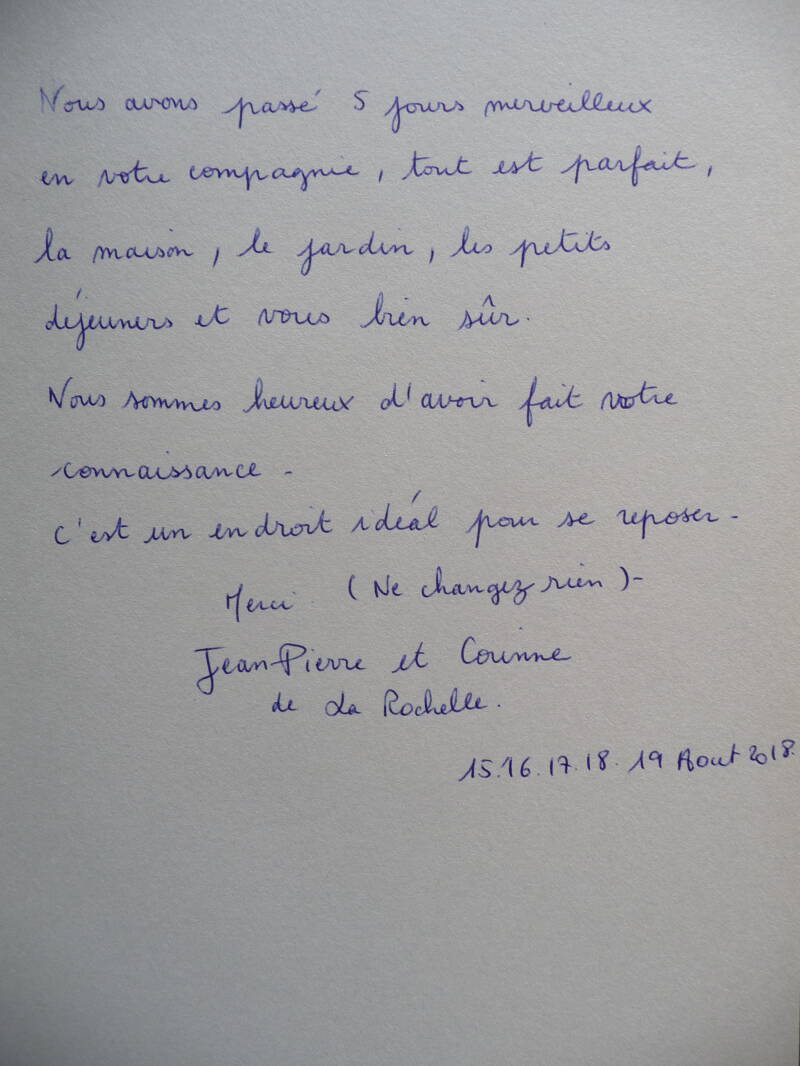 Nous avons passé 5 jours merveilleux
en votre compagnie, tout est parfait,
la maison, le jardin, les petits
déjeuners et vous bien sûr.
Nous sommes heureux d'avoir fait votre
connaissance -
C'est un endroit idéal pour se reposer -
Merci (Ne changez rien) -
Jean-Pierre et Corinne
de La Rochelle.
15.16.17.18. 19 Aout 2018.